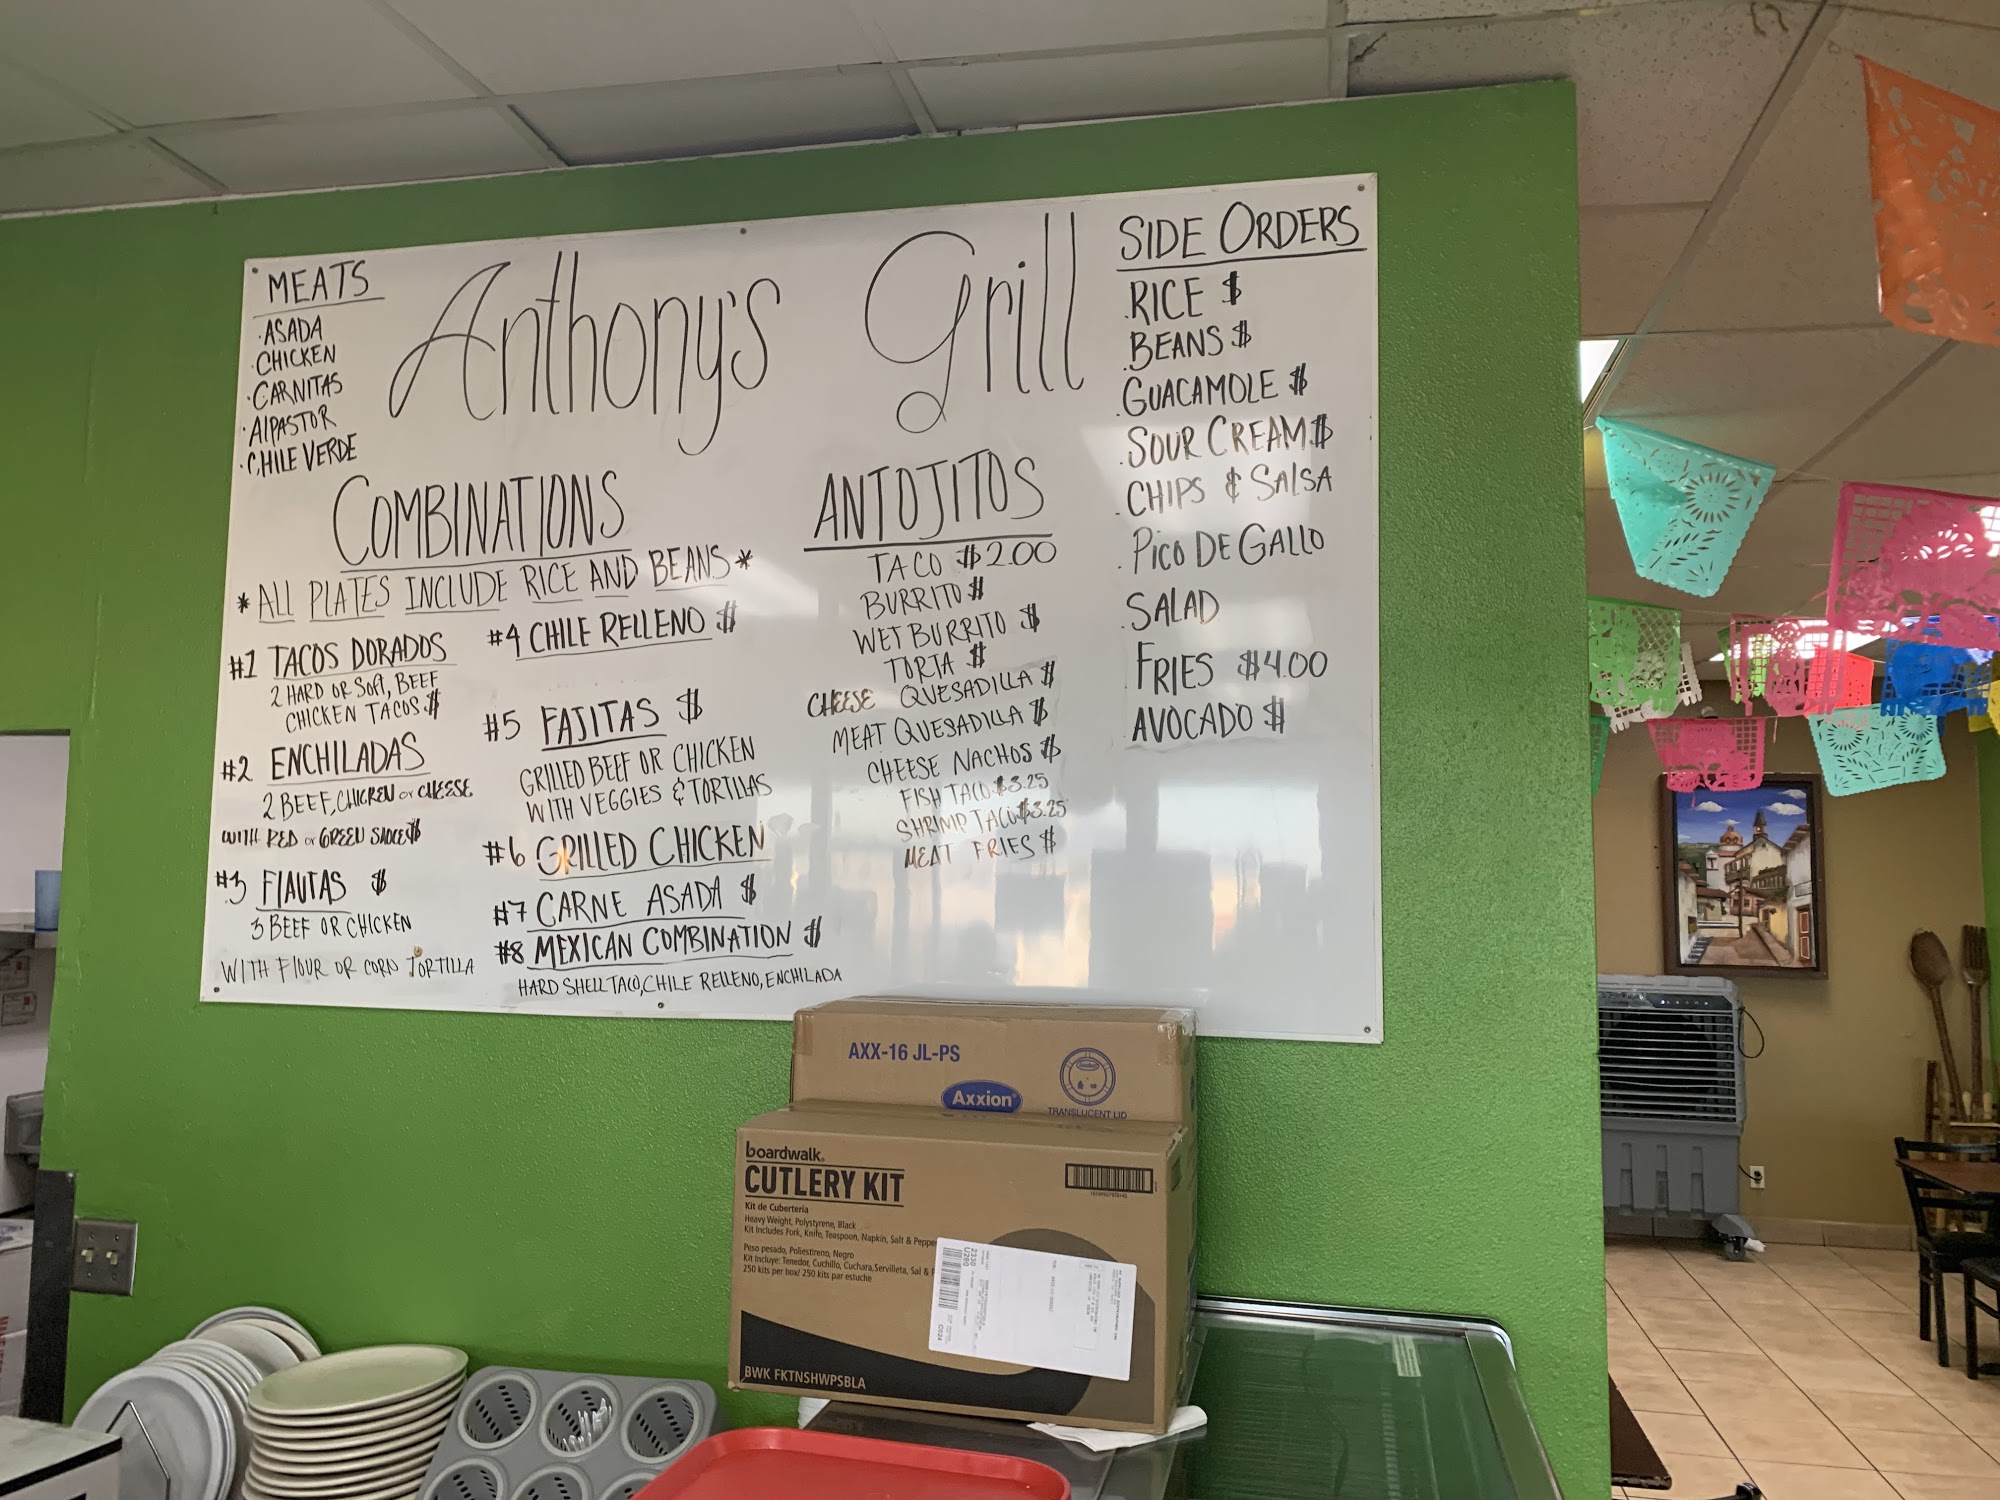 MEATS
· ASADA
· CHICKEN
· CARNITAS
· AlPASTOR
· CHILE VERDE
Anthony's Grill
COMBINATIONS
* ALL PLATES INCLUDE RICE AND BEANS *
#1 TACOS DORADOS
2 HARD OR SOFT, BEEF
CHICKEN TACOS $
#2 ENCHILADAS
2 BEEF, CHICKEN or CHEESE
WITH RED or GREEN SAUCE $
#3 FlAUTAS $
3 BEEF OR CHICKEN
WITH FlOUR OR CORN TORTILLA
#4 CHILE RELLENO $
#5 FAJITAS $
GRILLED BEEF OR CHICKEN
WITH VEGGIES & TORTILLAS
#6 GRILLED CHICKEN
#7 CARNE ASADA $
#8 MEXICAN COMBINATION $
HARD SHELL TACO, CHILE RELLENO, ENCHILADA
ANTOJITOS
TACO $2.00
BURRITO $
WET BURRITO $
TORTA $
CHEESE QUESADILLA $
MEAT QUESADILLA $
CHEESE NACHOS $
FISH TACO $3.25
SHRIMP TACO $3.25
MEAT FRIES $
SIDE ORDERS
. RICE $
. BEANS $
. GUACAMOLE $
. SOUR CREAM $
. CHIPS & SALSA
. PICO DE GALLO
. SALAD
. FRIES $4.00
. AVOCADO $
AXX-16 JL-PS
Axxion
TRANSLUCENT LID
boardwalk.
CUTLERY KIT
Kit de Cuberteria
Heavy Weight, Polystyrene, Black
Kit Includes: Fork, Knife, Teaspoon, Napkin, Salt & Pepper
Peso pesado, Poliestireno, Negro
Kit Incluye: Tenedor, Cuchillo, Cuchara, Servilleta, Sal &
250 kits per box/ 250 kits par estuche
2330
U260
C024
BWK FKTNSHWPSBLA